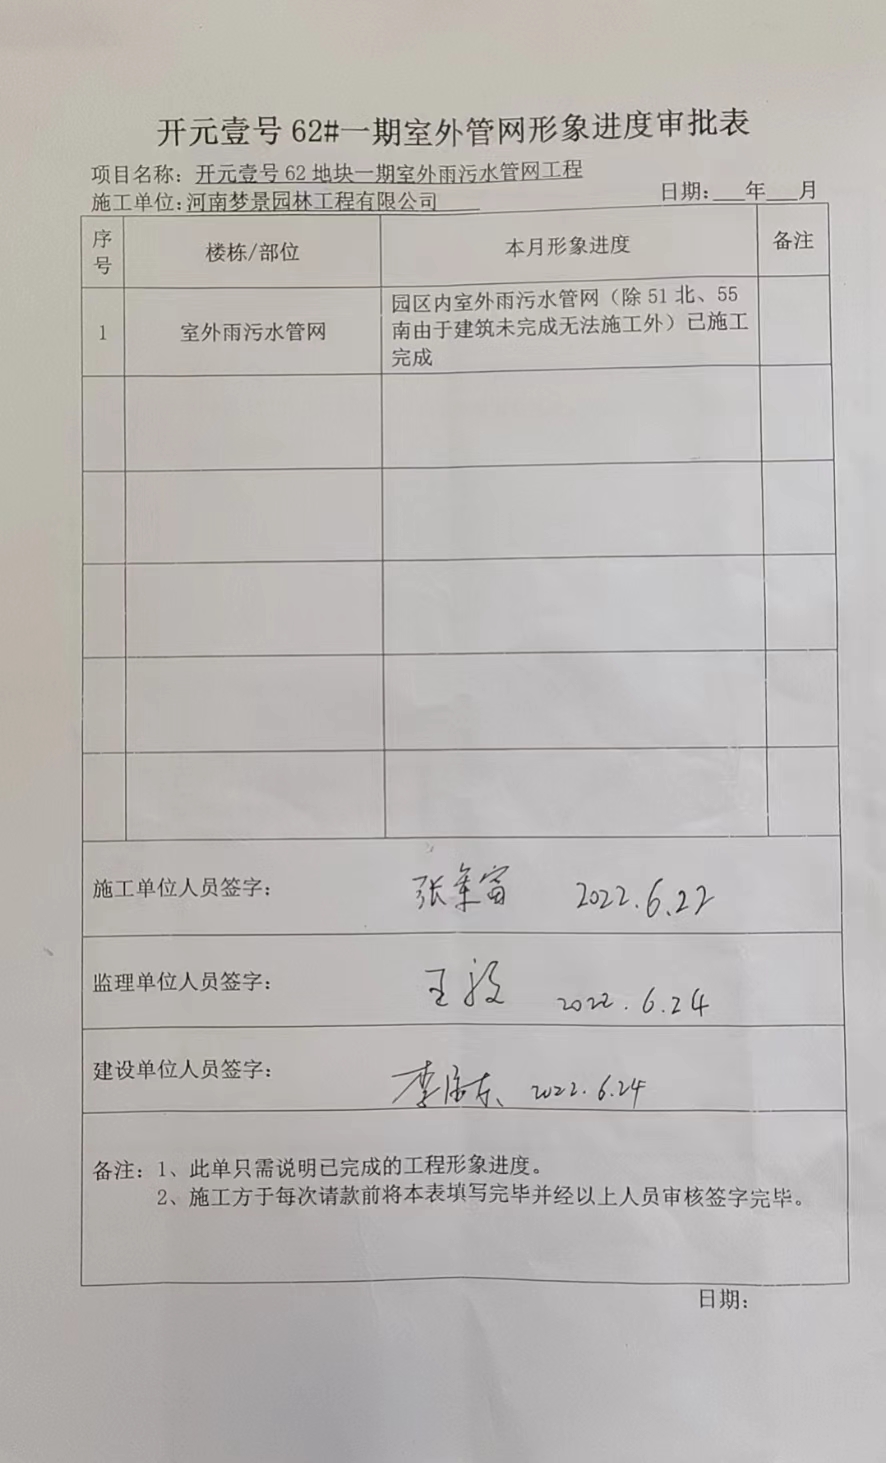 开元壹号62#一期室外管网形象进度审批表
项目名称：开元壹号62地块一期室外雨污水管网工程
施工单位：河南梦景园林工程有限公司 日期：___年___月
序号 楼栋/部位 本月形象进度 备注
1 室外雨污水管网 园区内室外雨污水管网（除51北、55
南由于建筑未完成无法施工外）已施工
完成
施工单位人员签字： 张 富 2022.6.22
监理单位人员签字： 王 2022.6.24
建设单位人员签字： 李 东 2022.6.24
备注：1、此单只需说明已完成的工程形象进度。
2、施工方于每次请款前将本表填写完毕并经以上人员审核签字完毕。
日期：